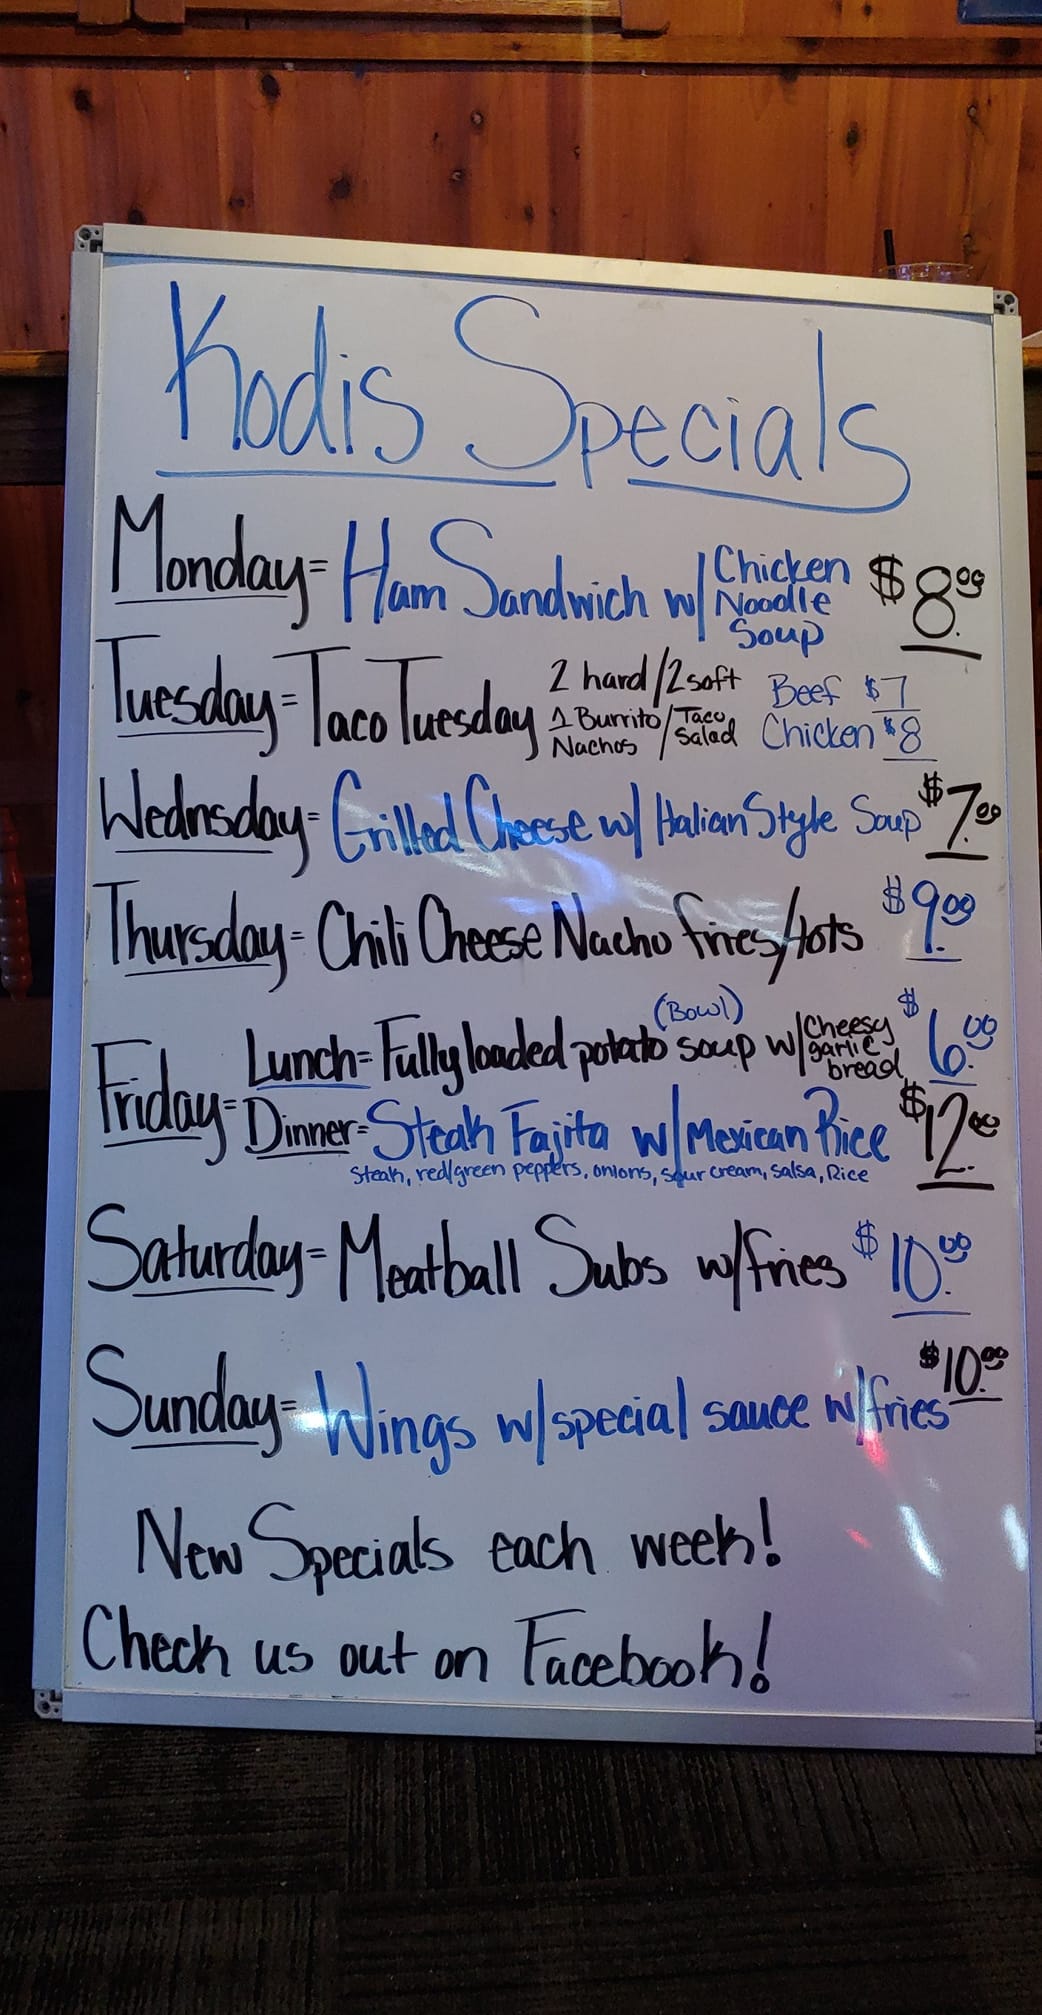 Kodis Specials
Monday= Ham Sandwich w/ Chicken Noodle Soup $8.00
Tuesday= Taco Tuesday 2 hard/2 soft 1 Burrito/Taco Salad Nachos Beef $7 Chicken $8
Wednsday= Grilled Cheese w/ Italian Style Soup $7.00
Thursday= Chili Cheese Nacho fries/tots $9.00
Friday= Lunch= Fully loaded potato soup (Bowl) w/ cheesy garlic bread $6.00
Dinner= Steak Fajita w/ Mexican Rice $12.00
Steak, red/green peppers, onions, sour cream, salsa, Rice
Saturday= Meatball Subs w/fries $10.00
Sunday= Wings w/special sauce w/fries $10.00
New Specials each week!
Check us out on Facebook!